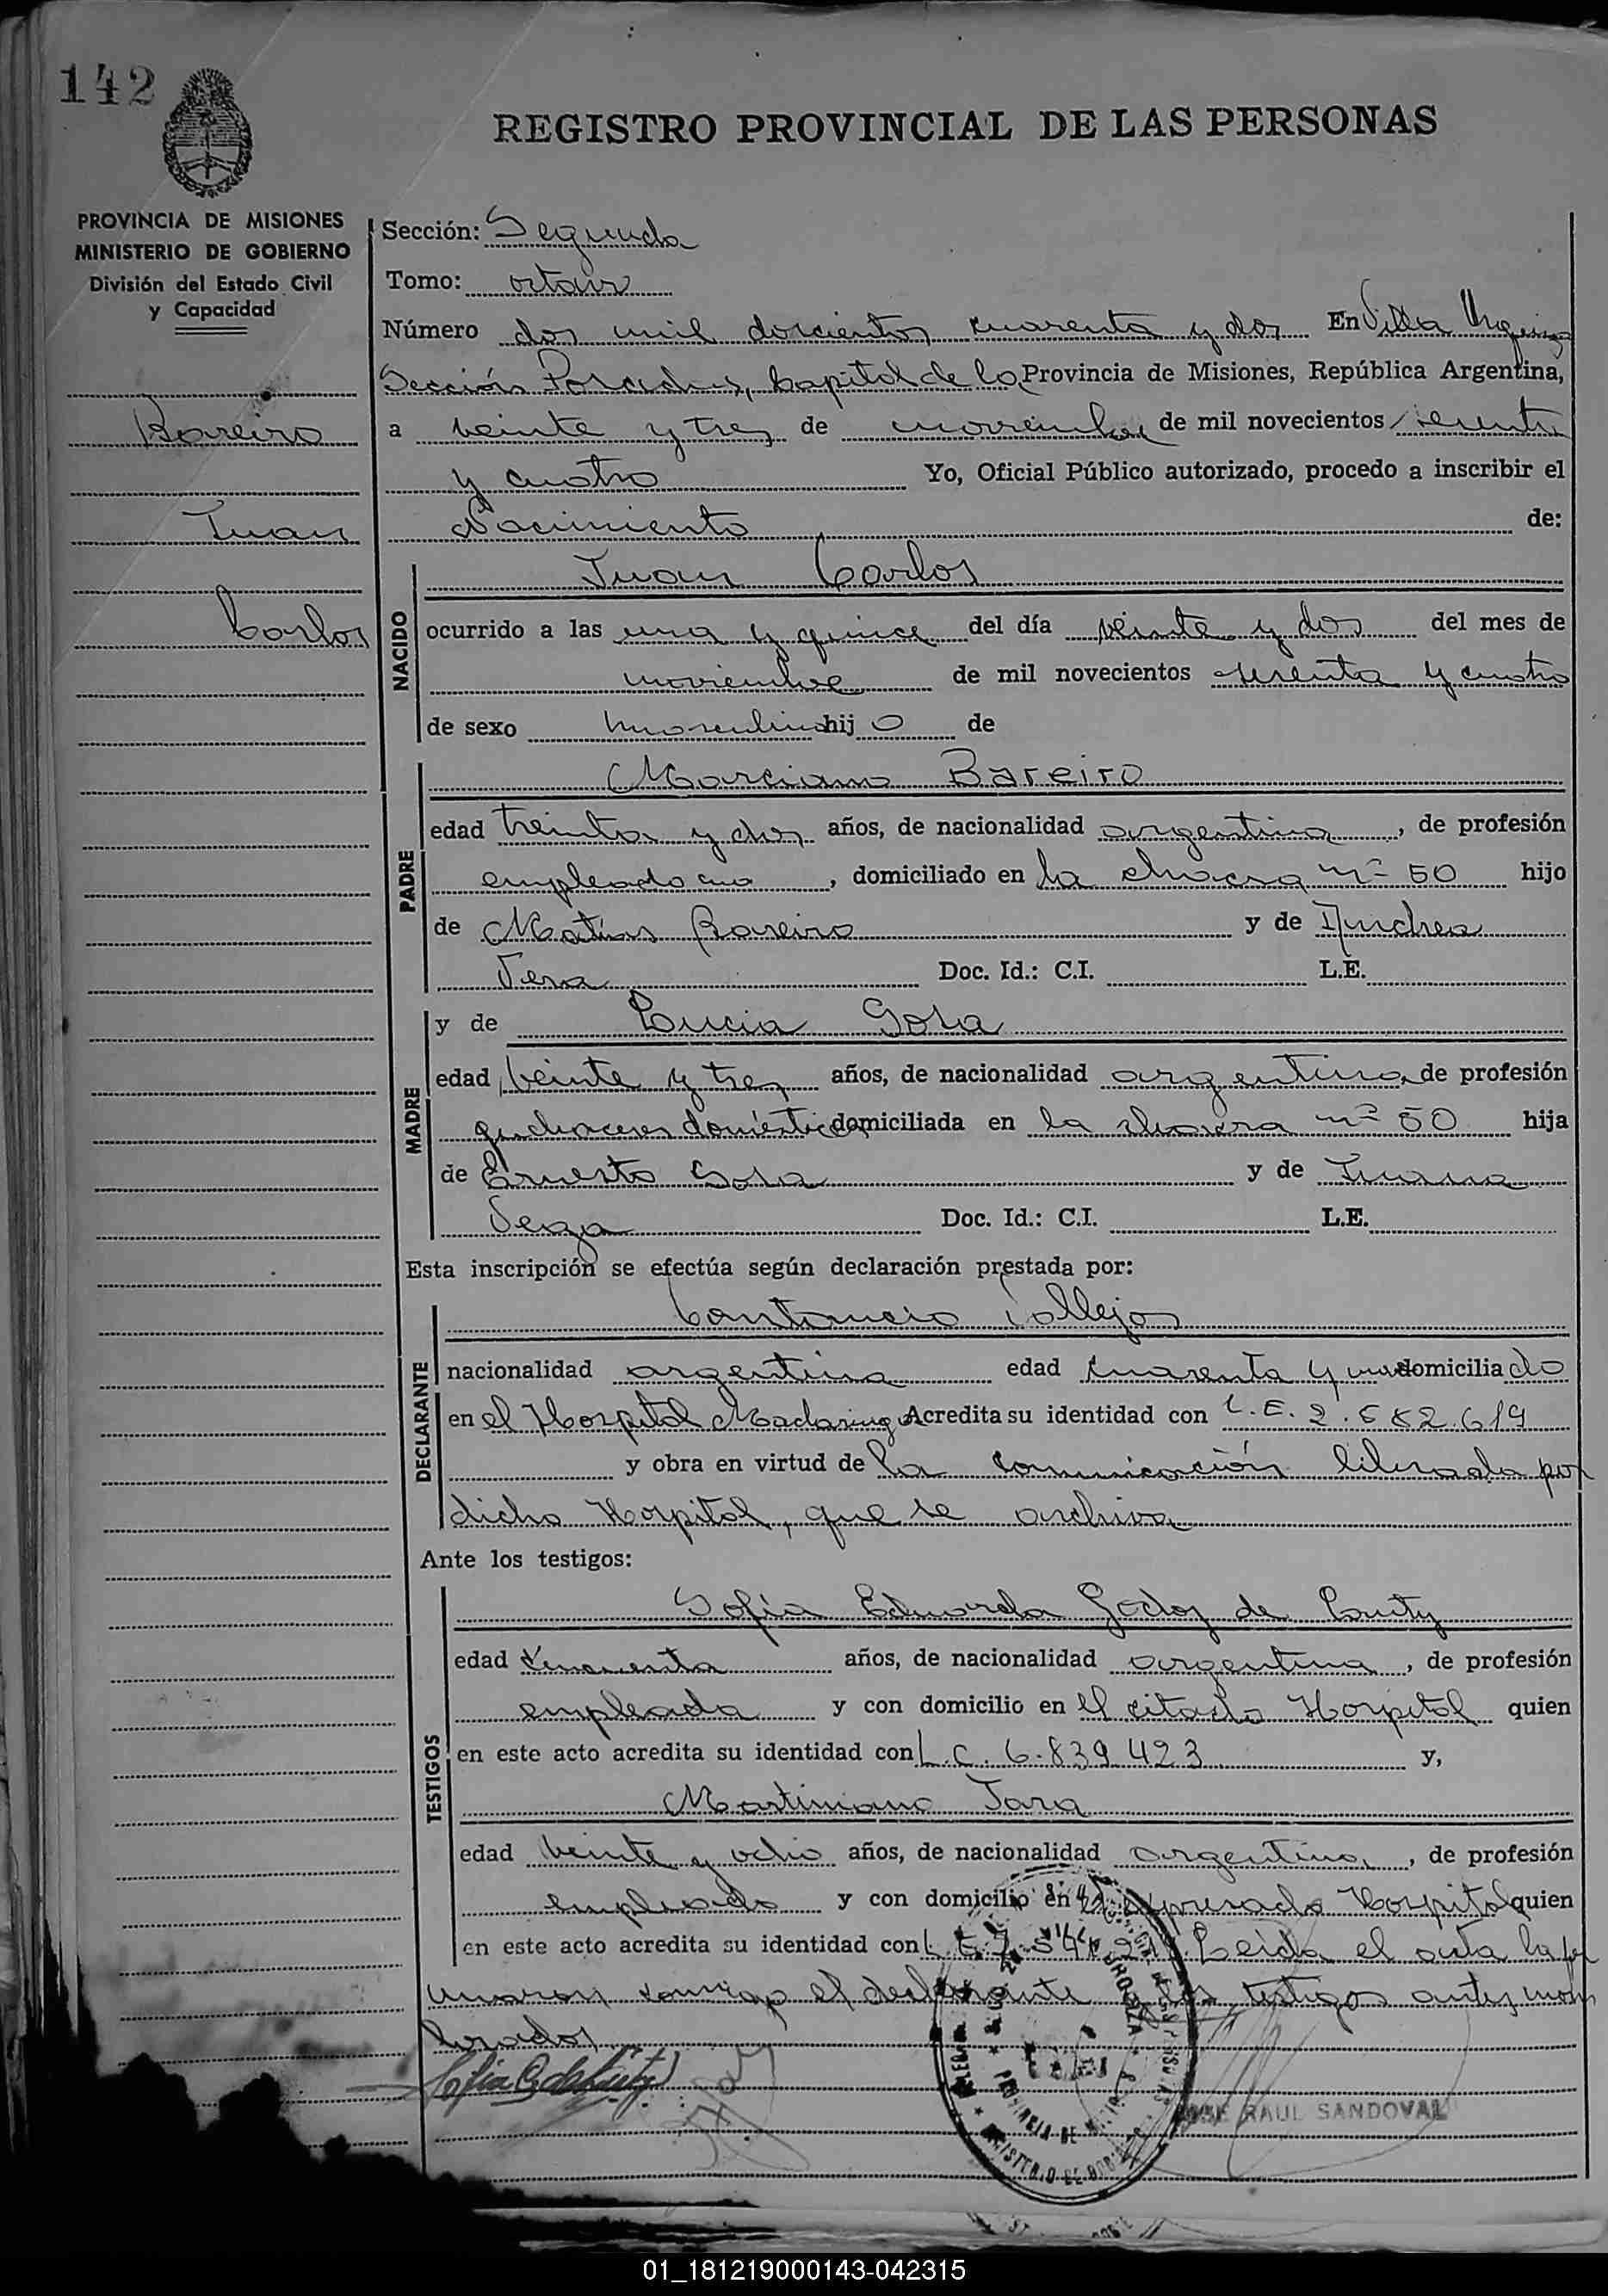 142
REGISTRO PROVINCIAL DE LAS PERSONAS
PROVINCIA DE MISIONES
MINISTERIO DE GOBIERNO
División del Estado Civil
y Capacidad
Bareiro
Juan
Carlos
Sección: Segunda
Tomo: octavo
Número dos mil doscientos cuarenta y dos En Villa Urquiza
Sección Posadas, Capital de la Provincia de Misiones, República Argentina,
a veinte y tres de noviembre de mil novecientos sesenta
y cuatro Yo, Oficial Público autorizado, procedo a inscribir el
Nacimiento de:
NACIDO
Juan Carlos
ocurrido a las una y quince del día veinte y dos del mes de
noviembre de mil novecientos sesenta y cuatro
de sexo masculino hijo de
PADRE
Marciano Bareiro
edad treinta y dos años, de nacionalidad argentina, de profesión
empleado, domiciliado en la chacra nº 50 hijo
de Matias Bareiro y de Andrea
Vera Doc. Id.: C.I. L.E.
MADRE
y de Lucia Sosa
edad veinte y tres años, de nacionalidad argentina, de profesión
quehaceres domésticos domiciliada en la chacra nº 50 hija
de Ernesto Sosa y de Juana
Vega Doc. Id.: C.I. L.E.
Esta inscripción se efectúa según declaración prestada por:
DECLARANTE
Vallejos
nacionalidad argentina edad cuarenta y uno domiciliado
en el Hospital Madariaga Acredita su identidad con L.E. 2.582.619
y obra en virtud de la comunicación librada por
dicho Hospital, que se archiva
Ante los testigos:
TESTIGOS
Sofia Eduarda Godoy de
edad cincuenta años, de nacionalidad argentina, de profesión
empleada y con domicilio en el citado Hospital quien
en este acto acredita su identidad con L.C. 6.839.423 y,
Martiniano Jara
edad veinte y ocho años, de nacionalidad argentina, de profesión
empleado y con domicilio en el expresado Hospital quien
en este acto acredita su identidad con L.E. 7. Leida el acta la fir
maron conmigo el declarante y los testigos antes nom
brados
JOSE RAUL SANDOVAL
01_181219000143-042315